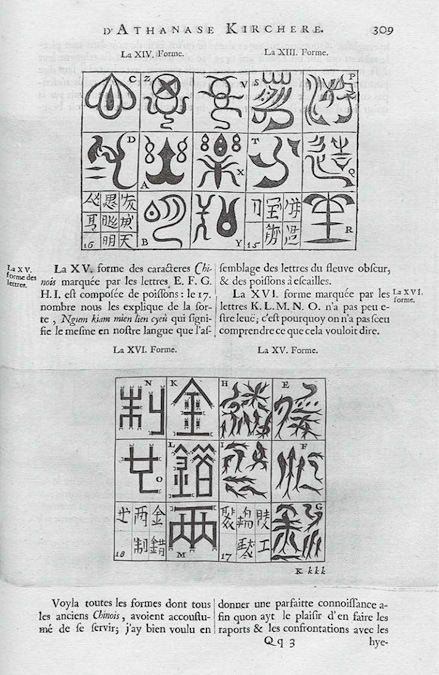 D'ATHANASE KIRCHERE. 309
La XIV. Forme. La XIII. Forme.
C Z V S P
D A X T Q
16 B Y 15 R
La XV. forme des lettres.
La XV. forme des caracteres Chi-
nois marquée par les lettres E. F. G.
H. I. est composée de poissons: le 17.
nombre nous les explique de la sor-
te, Ngum kiam mien lien cyeù qui signi-
fie le mesme en nostre langue que l'as-
semblage des lettres du fleuve obscur,
& des poissons à escailles.
La XVI. forme marquée par les
lettres K. L. M. N. O. n'a pas peu e-
stre leuë; c'est pourquoy on n'a pas sceu
comprendre ce que cela vouloit dire.
La XVI. forme.
La XVI. Forme. La XV. Forme.
N K H E
制 金
O L I F
世 錯
18 M 17 G
兩
世 兩 金
制 錯
K kkk
Voyla toutes les formes dont tous
les anciens Chinois, avoient accoustu-
mé de se servir; j'ay bien voulu en
donner une parfaitte connoissance a-
fin quon ayt le plaisir d'en faire les
raports & les confrontations avec les
Qq 3 hye-